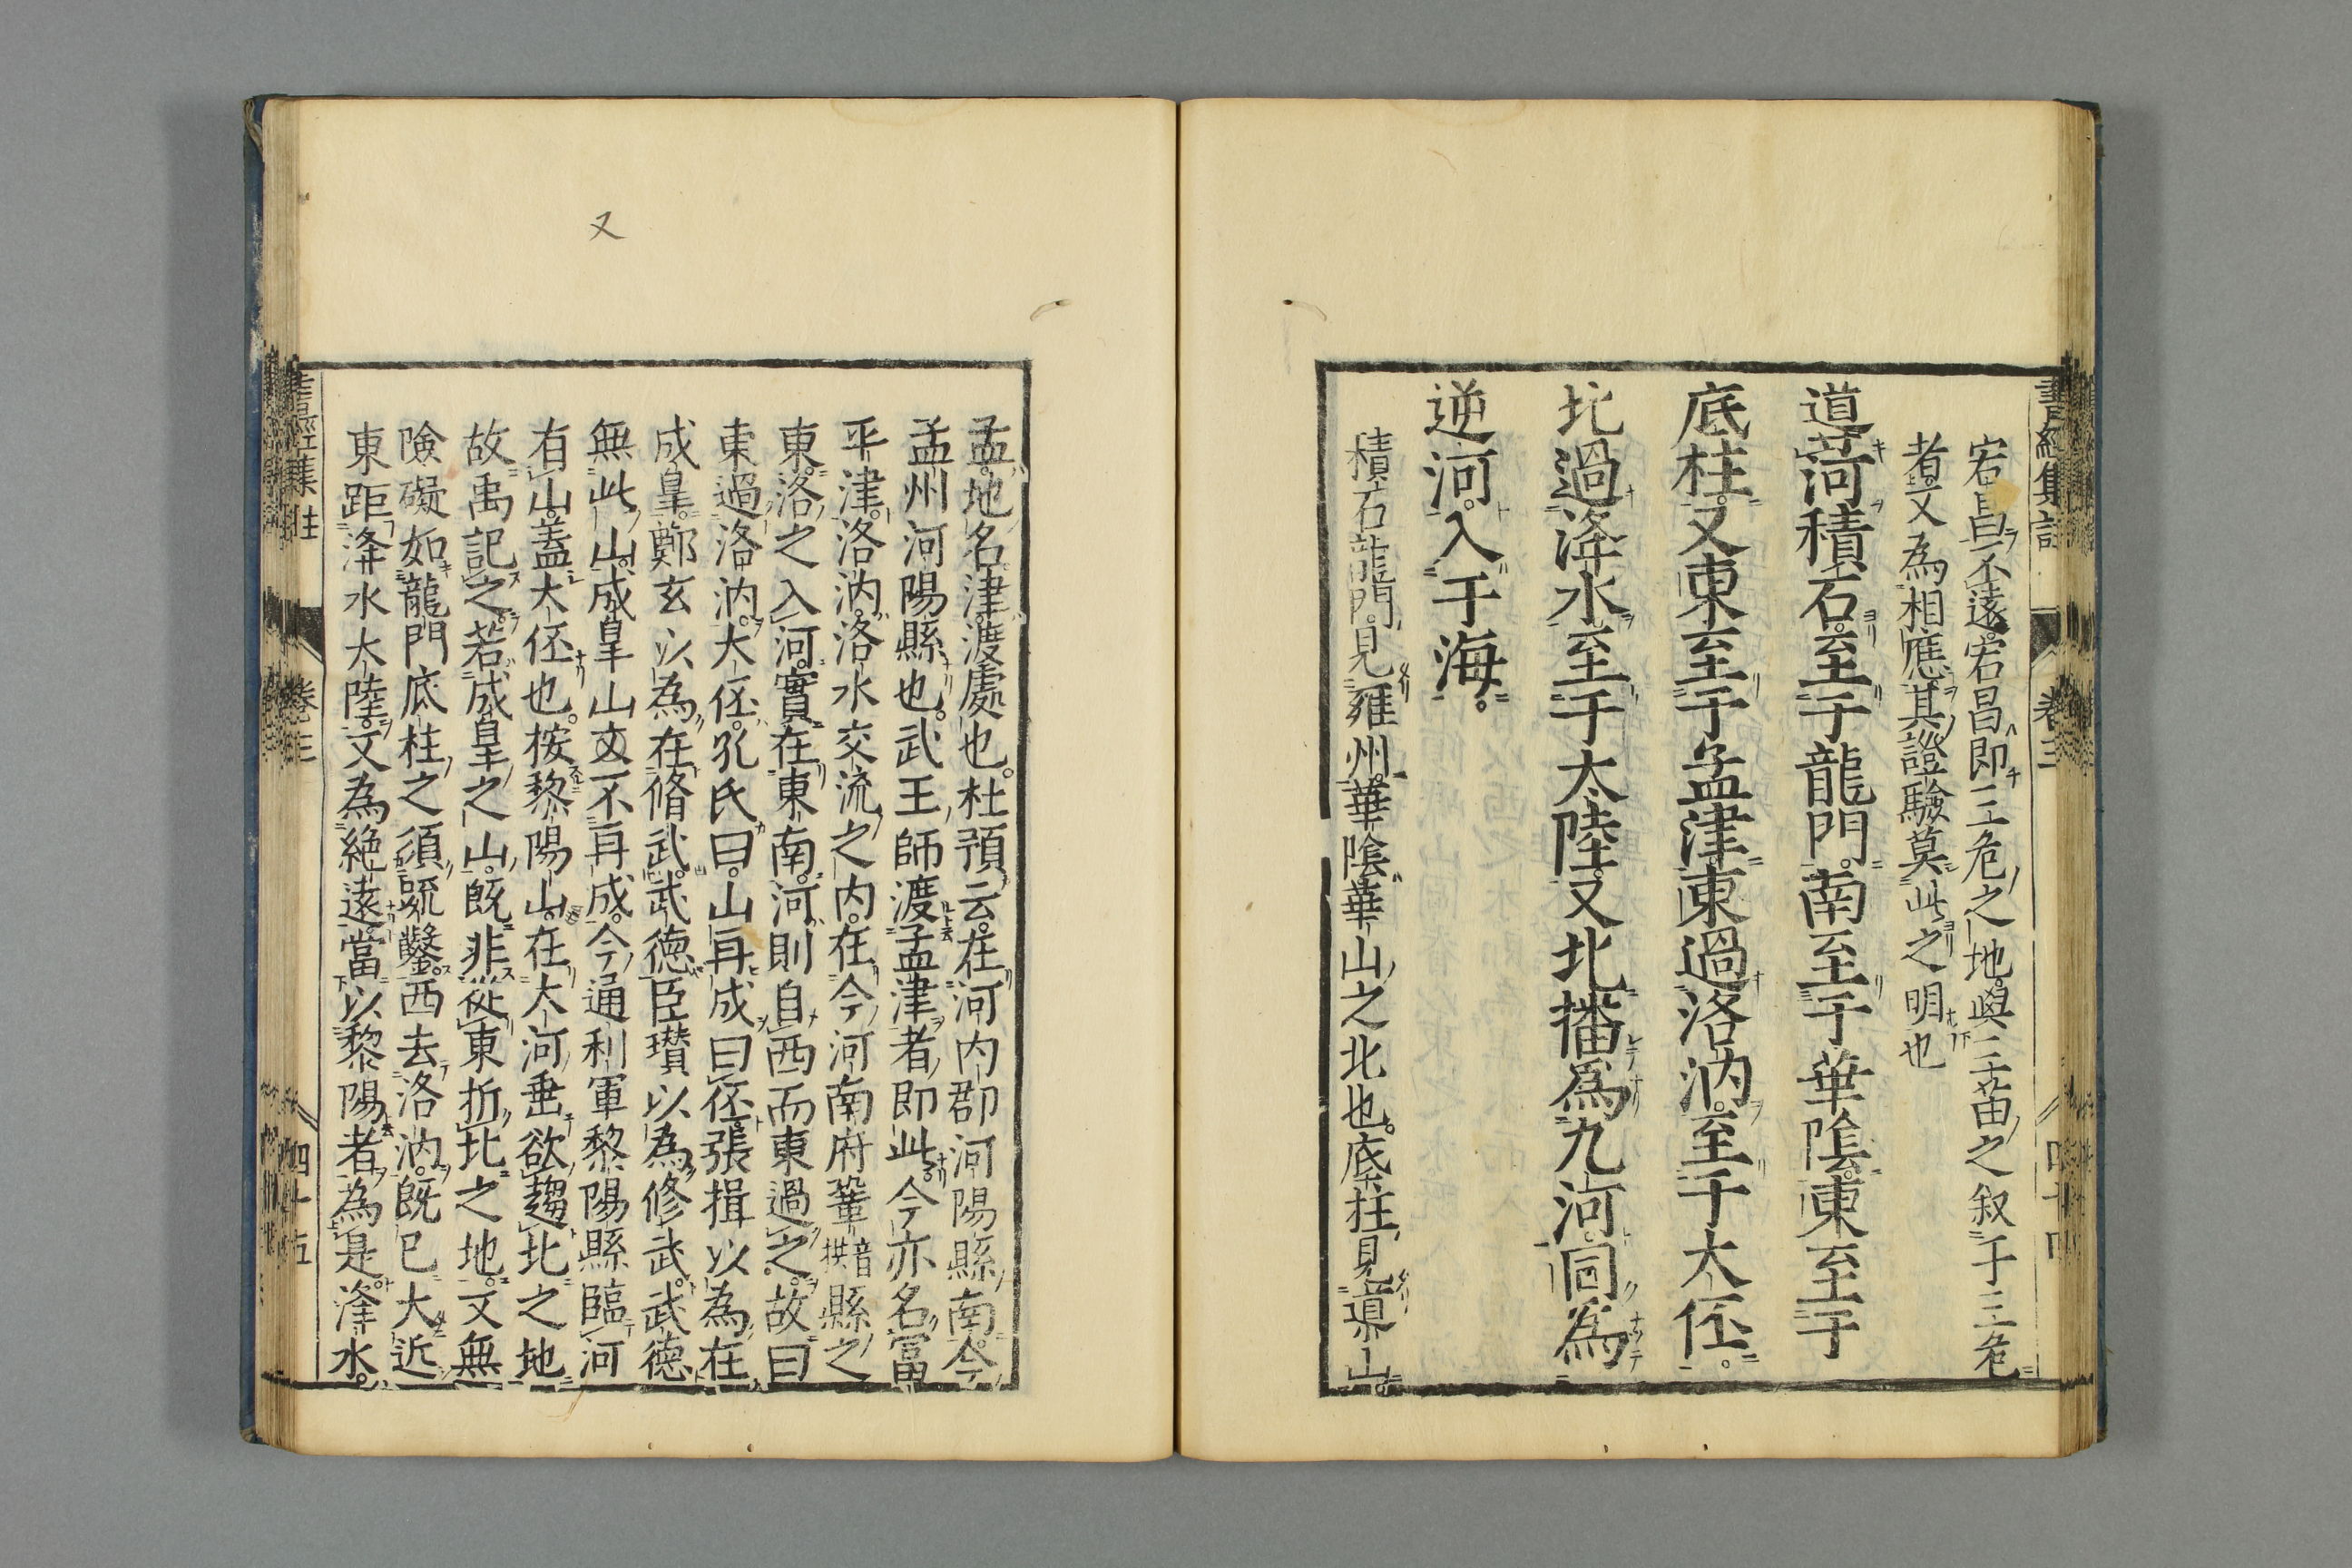 宕昌不遠宕昌即三危之地與三苗之叙于三危
者又為相應其證驗莫此之明也
道河積石至于龍門南至于華陰東至于
底柱又東至于孟津東過洛汭至于大伾
北過洚水至于大陸又北播為九河同為
逆河入于海
積石龍門見雍州華陰華山之北也底柱見導山
孟地名津渡處也杜預云在河内郡河陽縣南今
孟州河陽縣也武王師渡孟津者即此今亦名富
平津洛汭洛水交流之内在今河南府鞏音拱縣之
東洛之入河實在東南河則自西而東過之故曰
東過洛汭大伾孔氏曰山再成曰伾張揖以為在
成皇鄭玄以為在脩武武德臣瓚以為修武武德
無此山成皇山又不再成今通利軍黎陽縣臨河
有山蓋大伾也按黎陽山在大河垂欲趨北之地
故禹記之若成皇之山既非從東折北之地又無
險礙如龍門底柱之須䟽鑿西去洛汭既已大近
東距洚水大陸又為絶遠當以黎陽者為是洚水
書經集註 卷三 四十五
又